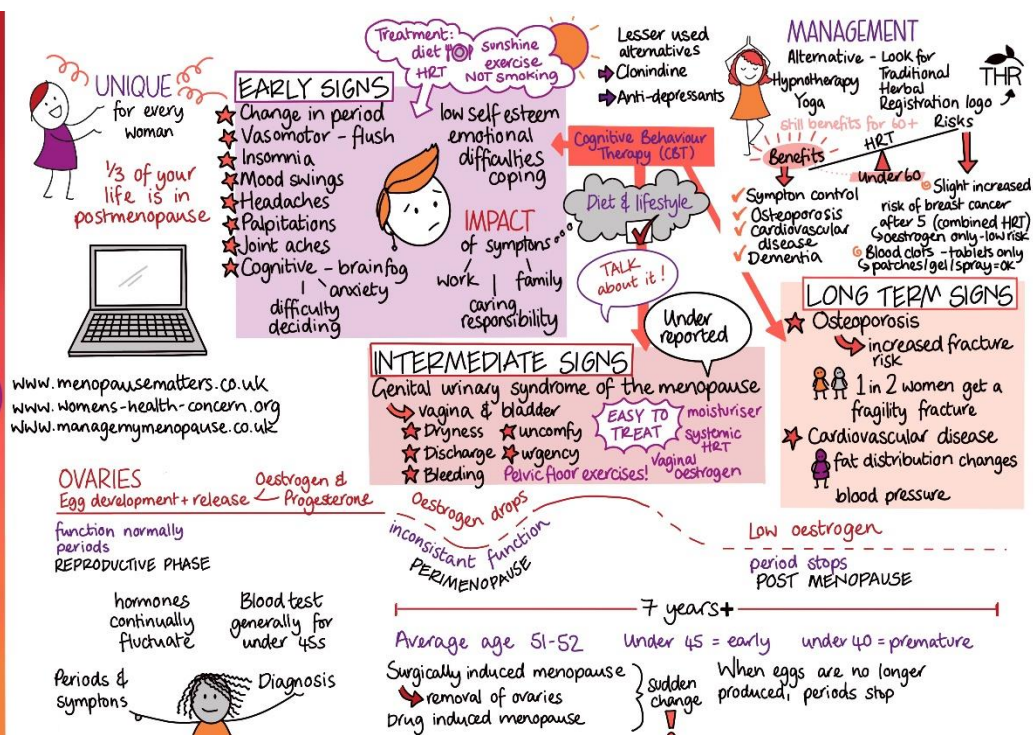 UNIQUE
for every
woman
1/3 of your
life is in
postmenopause
www.menopausematters.co.uk
www.womens-health-concern.org
www.managemymenopause.co.uk
EARLY SIGNS
Change in period
Vasomotor - flush
Insomnia
Mood swings
Headaches
Palpitations
Joint aches
Cognitive - brainfog
anxiety
difficulty
deciding
Treatment:
diet
HRT
sunshine
exercise
NOT SMOKING
low self esteem
emotional
difficulties
coping
IMPACT
of symptoms
work
family
caring
responsibility
Lesser used
alternatives
Clonindine
Anti-depressants
Cognitive Behaviour
Therapy (CBT)
Diet & lifestyle
TALK
about it!
Under
reported
MANAGEMENT
Alternative - Look for
Hypnotherapy
Yoga
Traditional
Herbal
Registration logo
THR
still benefits for 60+
HRT
Risks
Benefits
under 60
Sympton control
Osteoporosis
Cardiovascular
disease
Dementia
Slight increased
risk of breast cancer
after 5 (combined HRT)
oestrogen only-low risk
Blood clots - tablets only
patches/gel/spray=ok
INTERMEDIATE SIGNS
Genital urinary syndrome of the menopause
vagina & bladder
Dryness
uncomfy
Discharge
urgency
Bleeding
Pelvic floor exercises!
EASY TO
TREAT
moisturiser
systemic
HRT
Vaginal
oestrogen
LONG TERM SIGNS
Osteoporosis
increased fracture
risk
1 in 2 women get a
fragility fracture
Cardiovascular disease
fat distribution changes
blood pressure
OVARIES
Egg development + release
Oestrogen &
Progesterone
function normally
periods
REPRODUCTIVE PHASE
Oestrogen drops
inconsistant function
PERIMENOPAUSE
Low oestrogen
period stops
POST MENOPAUSE
hormones
continually
fluctuate
Blood test
generally for
under 45s
Periods &
symptons
Diagnosis
7 years+
Average age 51-52
Under 45 = early
under 40 = premature
Surgically induced menopause
removal of ovaries
Drug induced menopause
sudden
change
!
When eggs are no longer
produced, periods stop